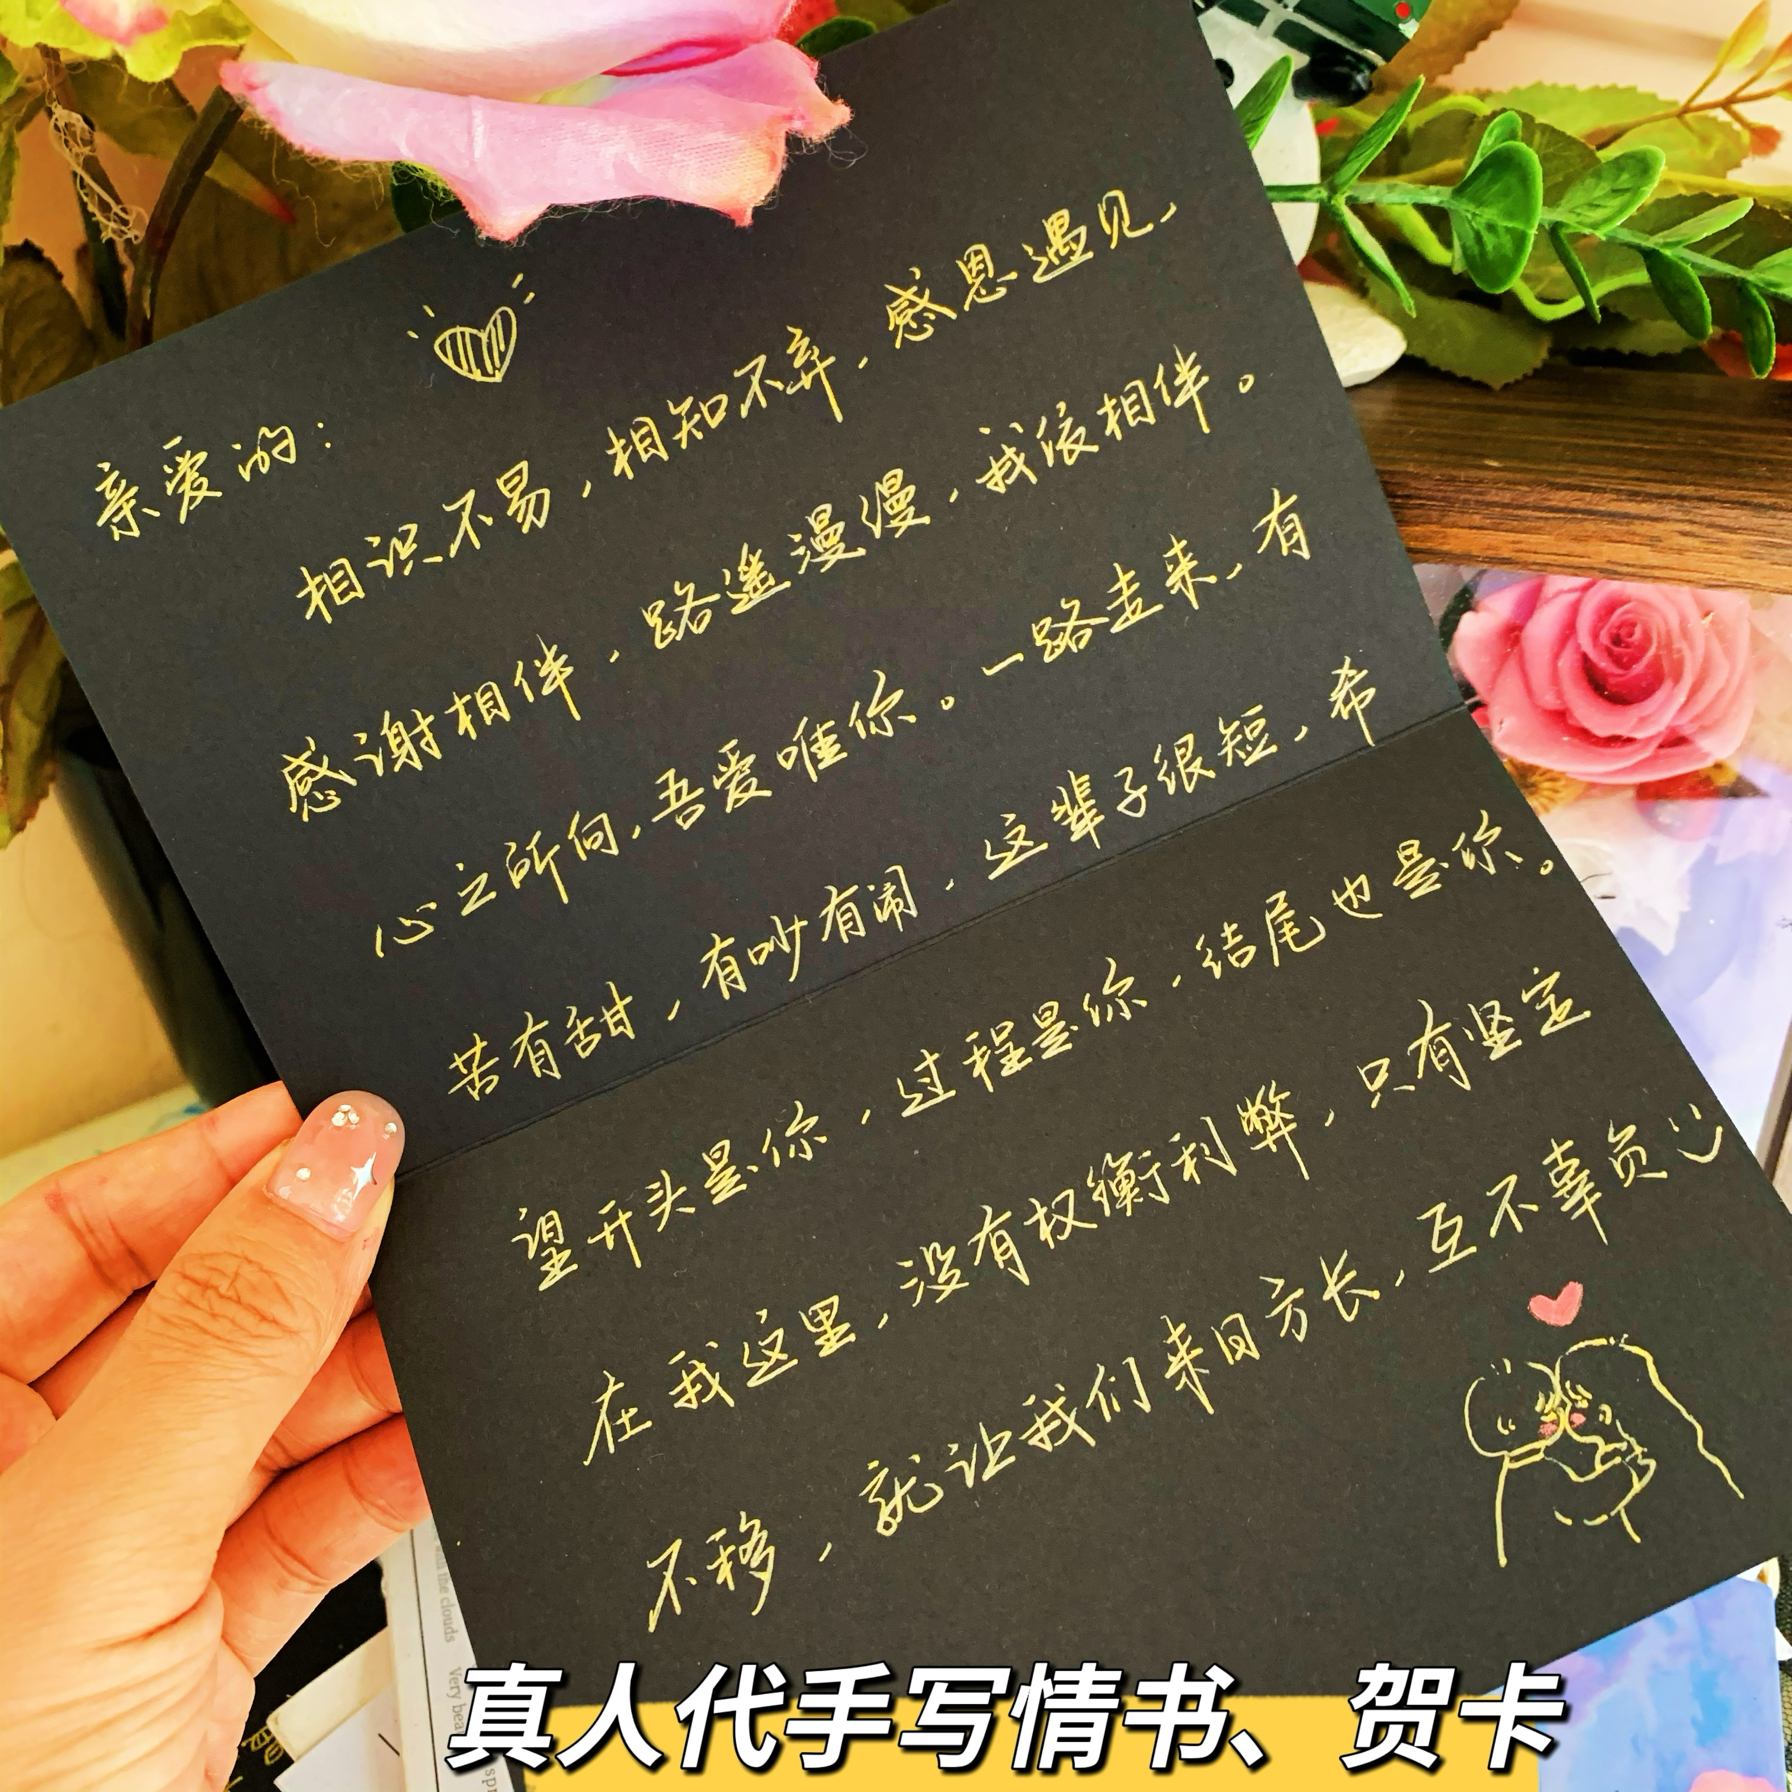 亲爱的：
相识不易，相知不弃，感恩遇见，
感谢相伴，路遥漫漫，我依相伴。
心之所向，吾爱唯你。一路走来，有
苦有甜，有吵有闹，这辈子很短，希
望开头是你，过程是你，结尾也是你。
在我这里，没有权衡利弊，只有坚定
不移，就让我们来日方长，互不辜负
the clouds
Very bea
真人代手写情书、贺卡